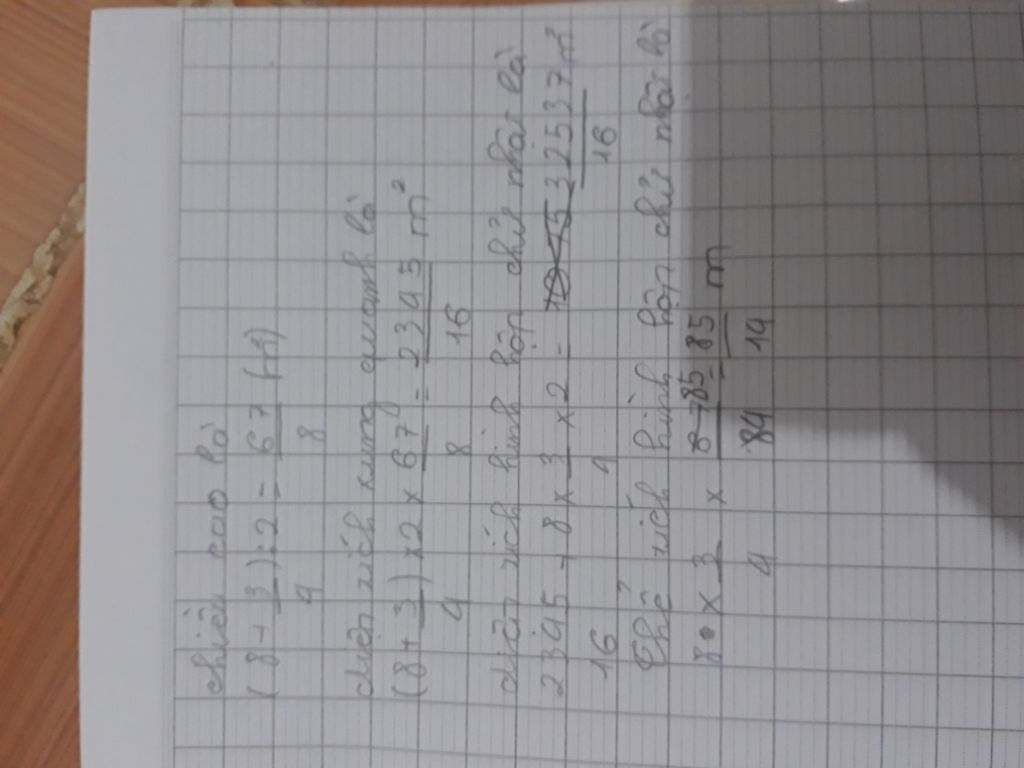 chiều cao là
(8 + 3/4) : 2 = 67/8 (m)
diện tích xung quanh là
(8 + 3/4) x 2 x 67/8 = 2345/16 m²
diện tích hình hộp chữ nhật là
2345/16 + 8 x 3/4 x 2 = 2537/16 m²
Thể tích hình hộp chữ nhật là
8 x 3/4 x = 85/14 m